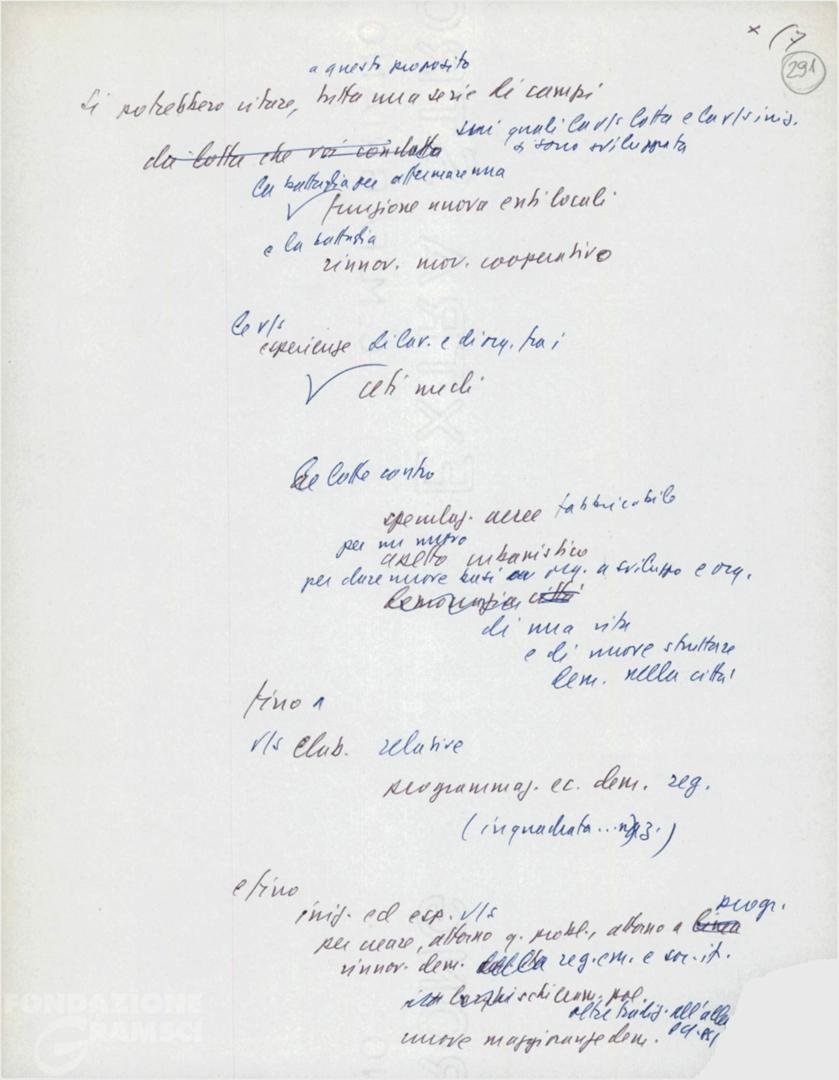 x (7
291
a questo proposito
Si potrebbero citare, tutta una serie di campi
sui quali la v/s lotta e la v/s iniz.
da lotta che voi condotta si sono sviluppata
la battaglia per affermare una
funzione nuova enti locali
e la battaglia
rinnov. mov. cooperativo
le v/s
esperienze di lav. e di org. tra i
ceti medi
Le lotte contro
speculaz. aree fabbricabile
per un nuovo
assetto urbanistico
per dare nuove basi org. a sviluppo e org.
democrazia città
di una vita
e di nuove strutture
dem. nella città
fino a
v/s elab. relative
programmaz. ec. dem. reg.
(inquadrata... naz.)
e fino
iniz. ed esp. v/s
progr.
per creare, attorno q. probl., attorno a linea
rinnov. dem. della reg. em. e soc. it.
schieram. pol.
oltre tradiz. all'
nuove maggioranze dem.
FONDAZIONE
GRAMSCI